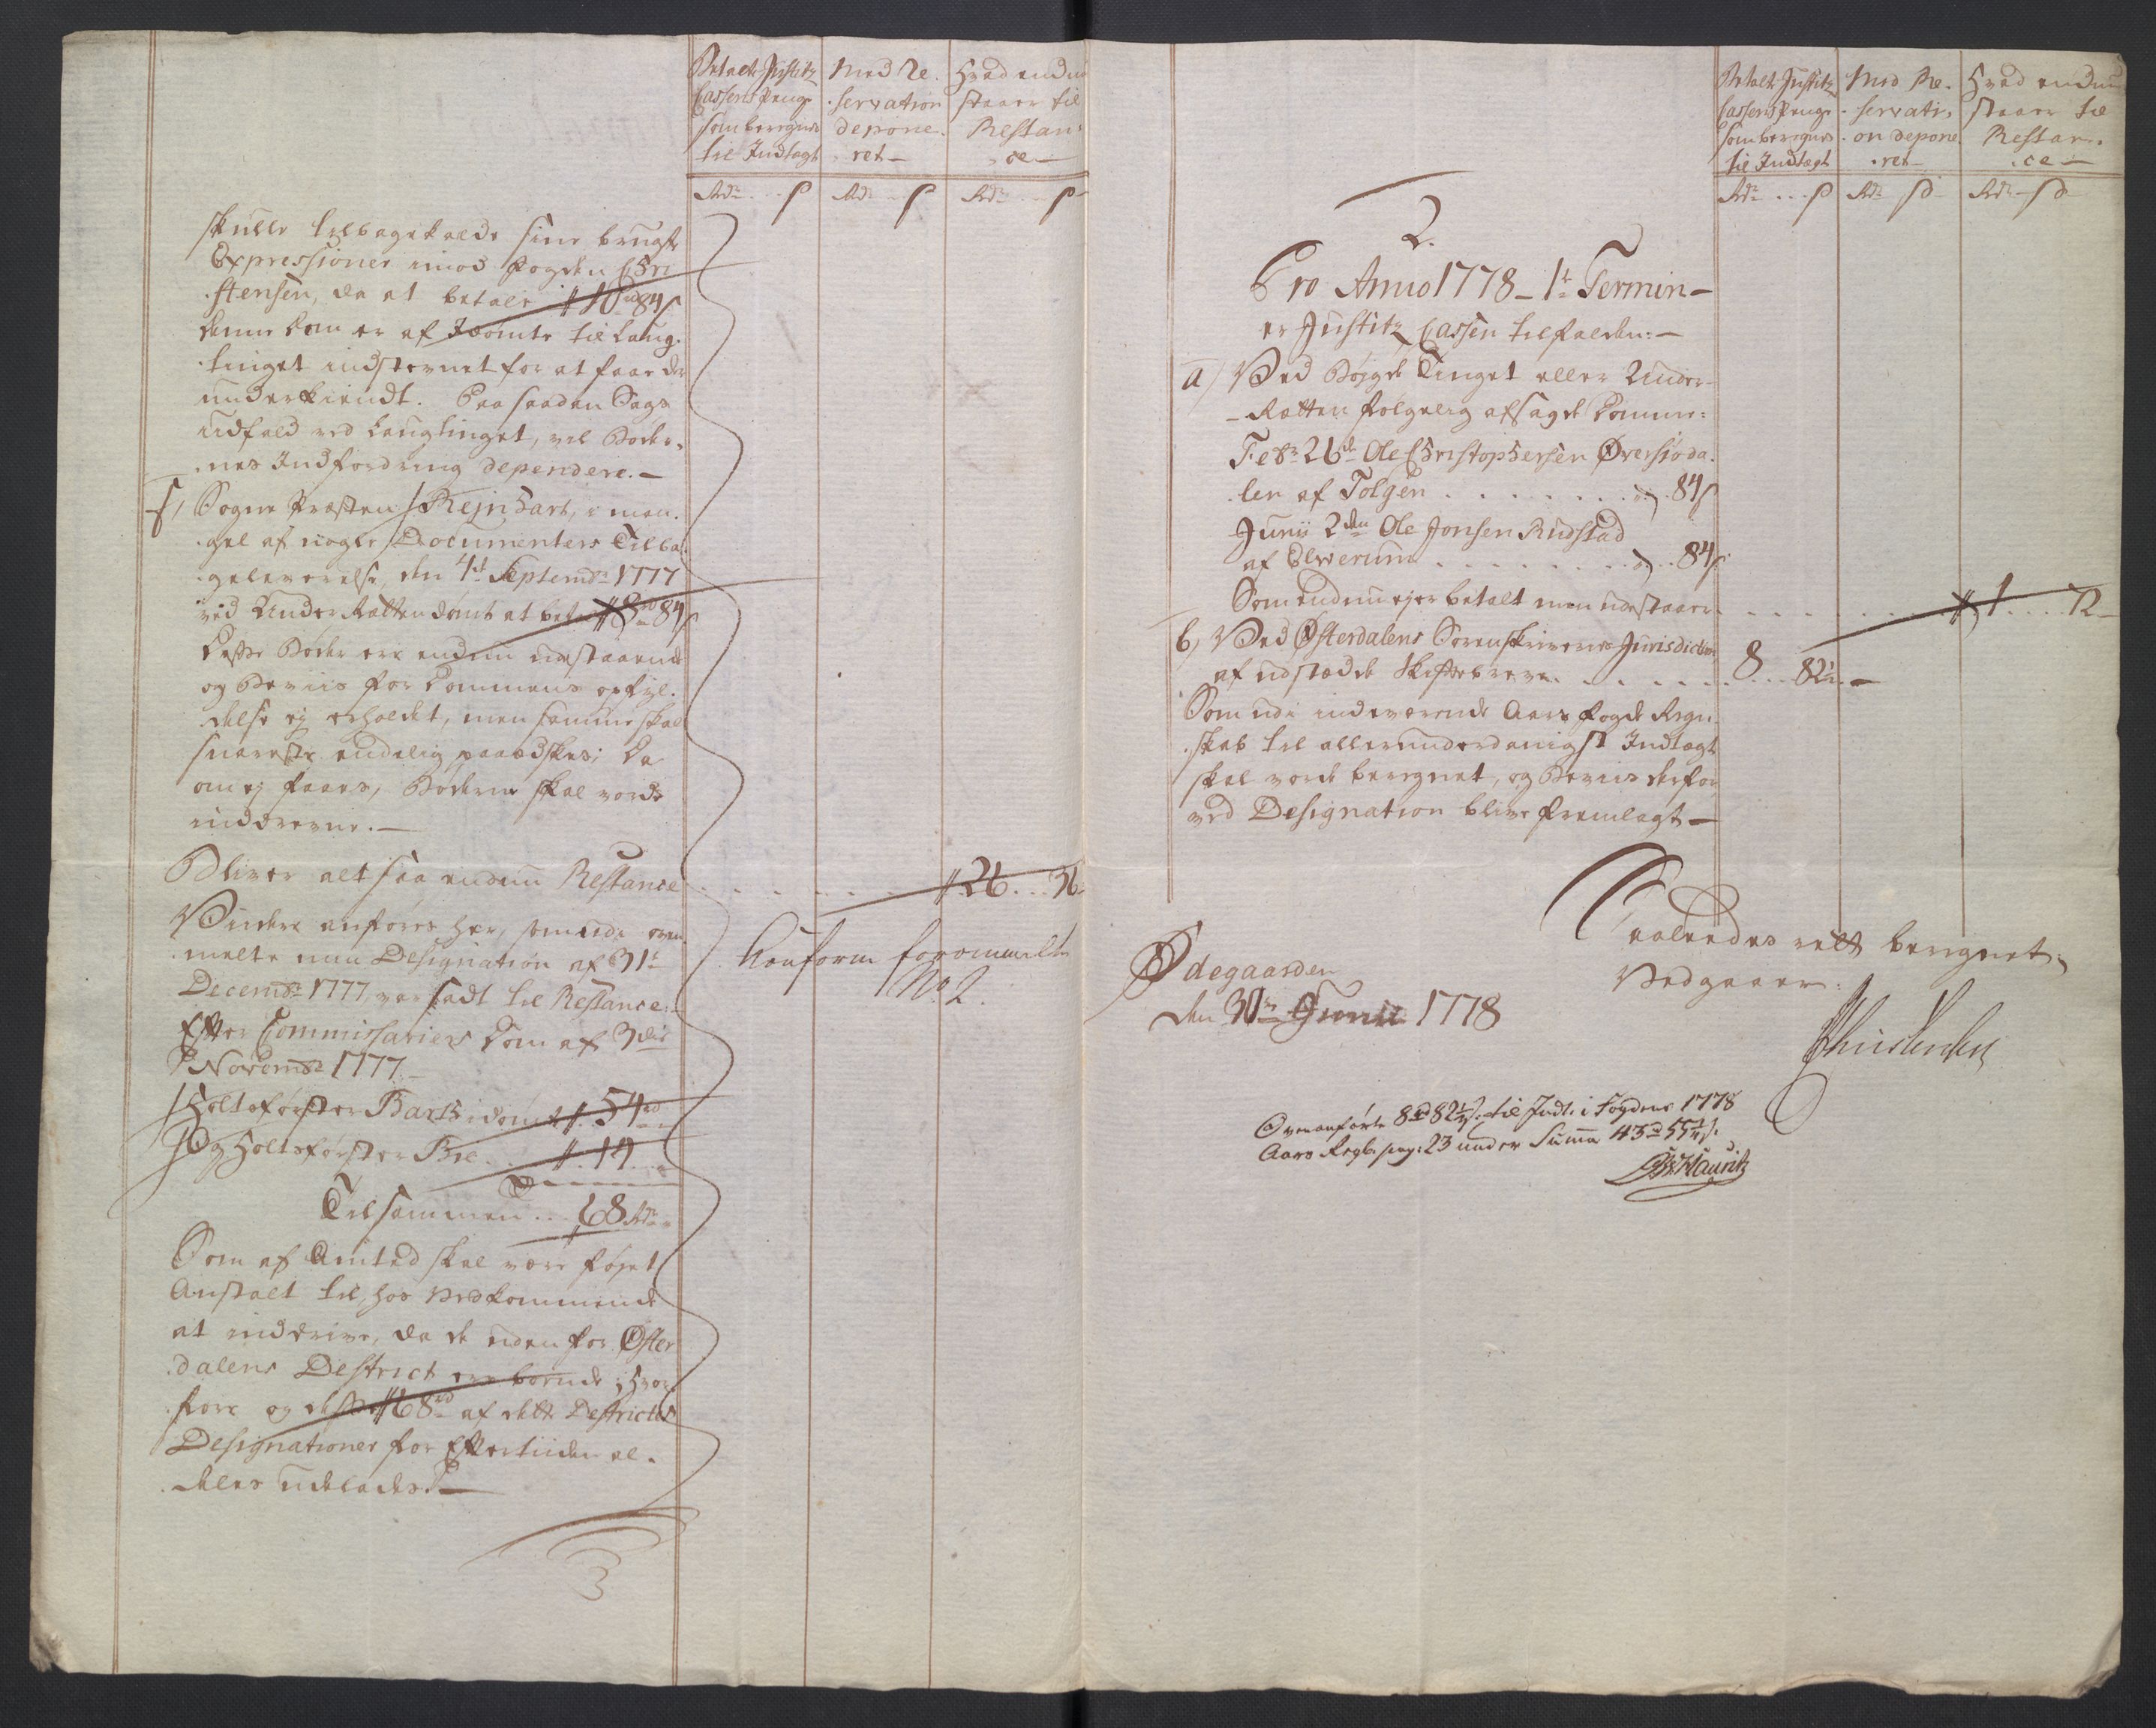 Betalt Justitz
Cassens Penge
som beregnes
til Indtægt
Med Re-
servation
depone-
ret —
Hvad endnu
staaer til
Restan-
ce —
Rdr . . . s
Rdr . . s
Rdr . . s
skulle tilbagekalde sine brugte
Expressioner imod Fogden Chri-
stensen, da at betale # 10 rd 84 s
denne Dom er af Idømte til Laug-
tinget indstevnet for at faae den
underkiendt. Paa saadan Sags
Udfald ved Laugtinget, vil Bøder-
nes Indfordring dependere. —
f, Sogne Præsten Rejnhart, i man-
gel af nogle Documenters Tilba-
geleverelse, den 4de Septembr 1777
ved Under Retten dømt at betale # 8 rd 84 s
Disse Bøder ere endnu udestaaende
og Beviis for Dommens opfyl-
delse ej erholdet, men samme skal
snareste endelig paaædskes; da
om ej faaes, Bøderne skal vorde
inddrevne. —
Bliver altsaa endnu Restance . . . . . . . # 26 . . . 36
Videre anføres her, som udi oven-
melte min Designation af 31te
Decembr 1777 var sadt til Restance:
Efter Commissariers Dom af 3die
Novembr 1777 —
Holtsførster Barth idømt # 54 rd
Og Holtsførster Bie . . # 14 . .
Tilsammen . . 68 Rdr
Som af Amtet skal være føjet
Anstalt til, hos Vedkommende
at inddrive, da de uden for Øster-
dalens District ere boende; hvor-
fore og disse # 68 rd af dette Districts
Designationer for Eftertiiden al-
deles udelades. —
Conform foromelte
No. 2.
Betalt Justitz
Cassens Penge
som beregnes
til Indtægt
Med Re-
servati-
on depone-
ret —
Hvad endnu
staaer til
Restan-
ce —
Rdr . . . s
Rdr s
Rdr s
2.
Pro Anno 1778 — 1te Termin —
er Justitz Cassen tilfalden: —
a) Ved Bøjgde Tinget eller Under-
Retten følgelig afsagde Domme:
Febr 26de Ole Christophersen Øversiøda-
len af Tolgen . . . . . . . . . 84 s
Junii 2den Ole Jonsen Rudstad
af Elwerum . . . . . . . . . 84 s
Som endnu ej er betalt men udestaaer . . . . . . # 1 . . . 72
b) Ved Østerdalens Sorenskriveries Jurisdiction
af udstædde Skiftebreve . . . . . . 8 . . . 82½ —
Som udi indeværende Aars Fogde Regn-
skab til allerunderdanigst Indtægt
skal vorde beregnet, og Beviis derfor
ved Designation blive fremlagt —
Saaledes rett beregnet,
Vedgaaer.
Ødegaarden
den 30te Junii 1778
Christensen
Ovenanførte 8 rd 82½ s. til Indt. i Fogdens 1778
Aars Regb. pag: 23 under Summa 43 rd 55¼ s.